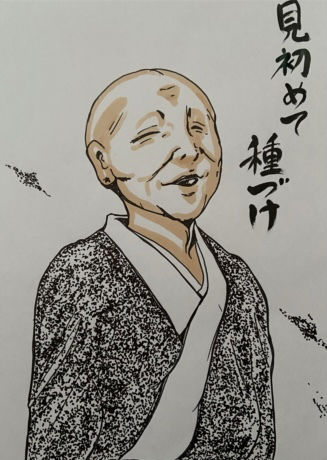 見初めて
種づけ